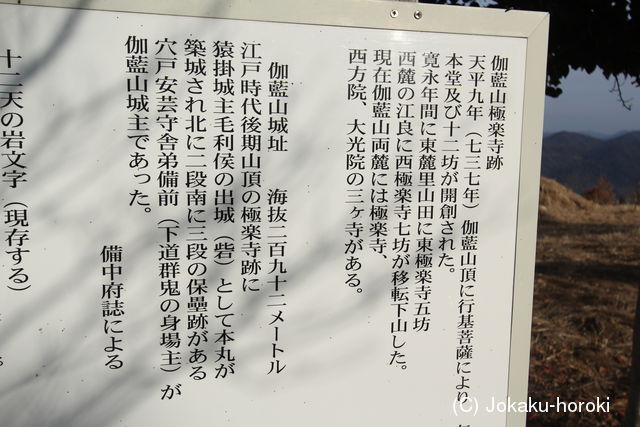 伽藍山極楽寺跡
天平九年（七三七年）伽藍山頂に行基菩薩により
本堂及び十二坊が開創された。
寛永年間に東麓里山田に東極楽寺五坊
西麓の江良に西極楽寺七坊が移転下山した。
現在伽藍山両麓には極楽寺、
西方院、大光院の三ヶ寺がある。
伽藍山城址　海抜二百九十二メートル
江戸時代後期山頂の極楽寺跡に
猿掛城主毛利侯の出城（砦）として本丸が
築城され北に二段南に三段の保壘跡がある
穴戸安芸守舎弟備前（下道群鬼の身場主）が
伽藍山城主であった。
備中府誌による
十二天の岩文字（現存する）
(C) Jokaku-horoki